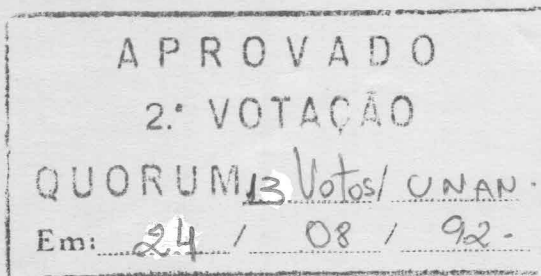 APROVADO
2.ª VOTAÇÃO
QUORUM 13 Votos/ UNAN.
Em: 24 / 08 / 92.